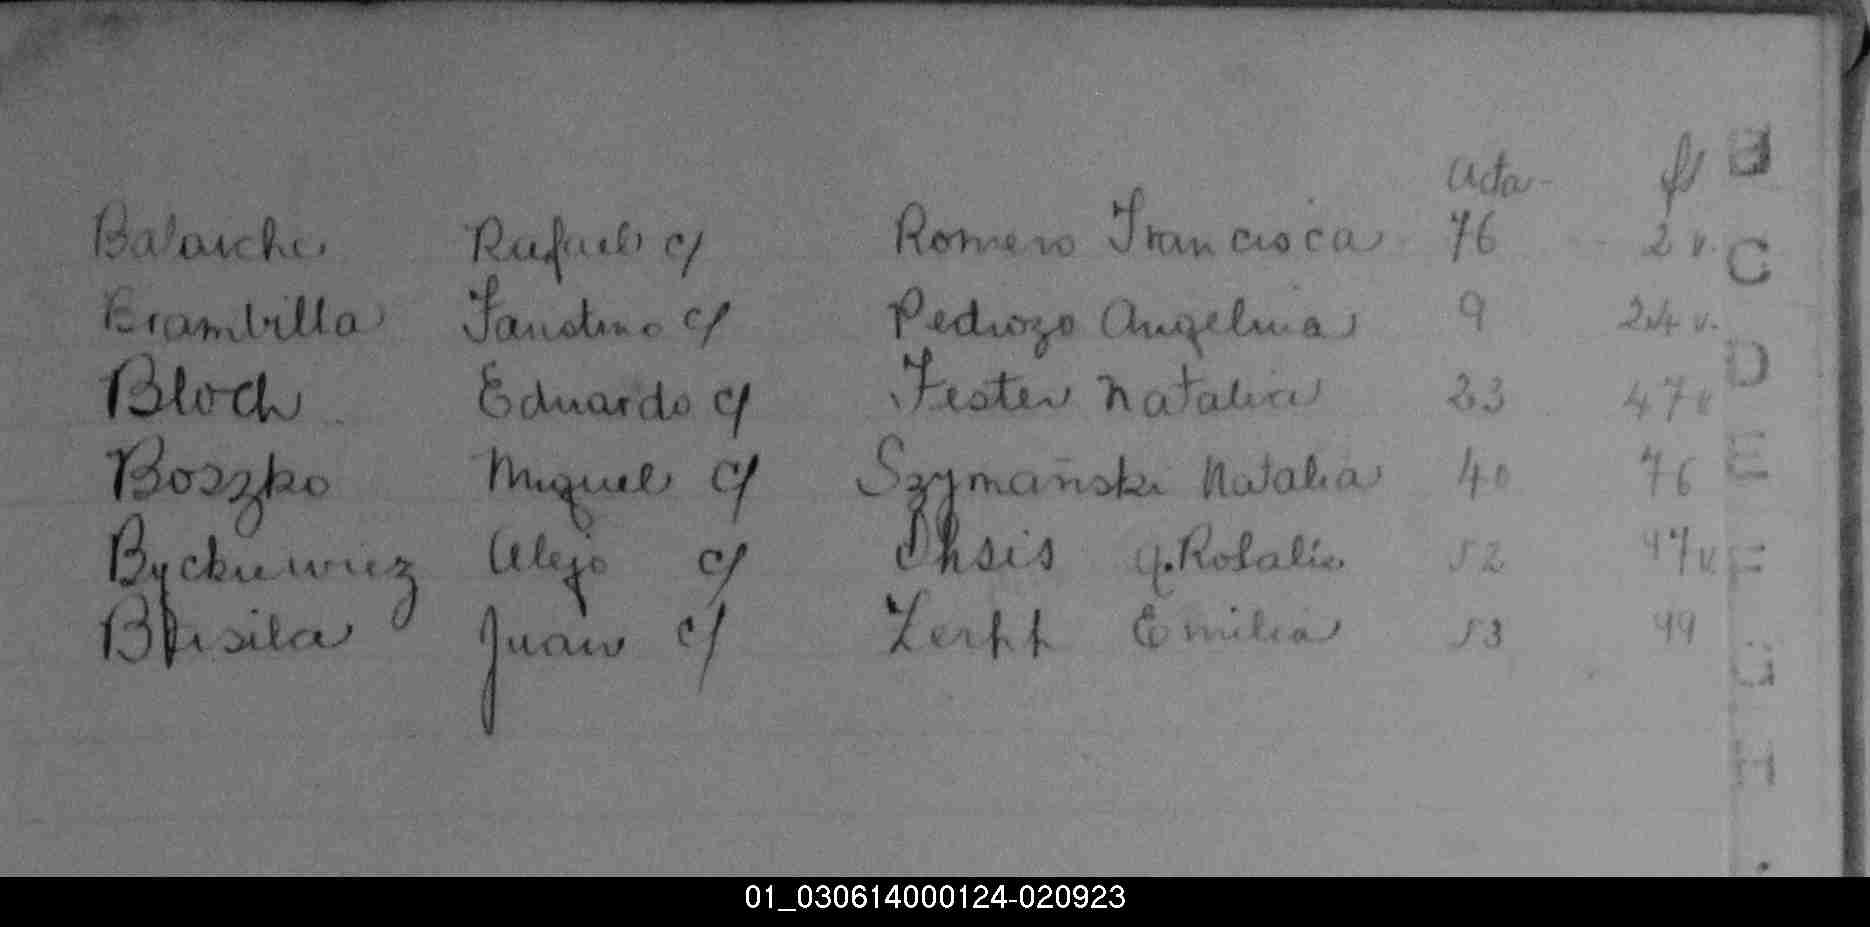 Acta fs
Balarche Rafael c/ Romero Francisca 76 2 v.
Brambilla Faustino c/ Pedrozo Angelina 9 24 v.
Bloch Eduardo c/ Fester Natalia 23 47 v
Boszko Miguel c/ Szymański Natalia 40 76
Byckiewicz Alejo c/ q. Rosalia 52 97 v.
Juan c/ Zerpp Emilia 53 99
B
C
D
E
F
G
H
01_030614000124-020923